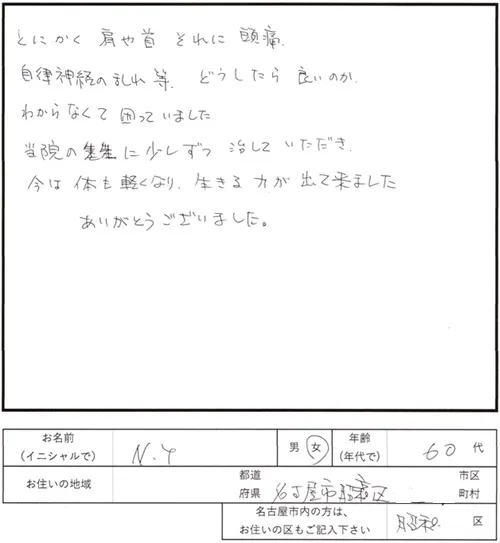 とにかく 肩や首 それに 頭痛.
自律神経の乱れ 等. どうしたら 良いのか.
わからなくて 困っていました
当院の先生に少しずつ 治して いただき.
今は 体も 軽くなり. 生きる 力が 出て来ました
ありがとうございました。
お名前
(イニシャルで)
N.Y
男 女
年齢
(年代で)
60 代
お住いの地域
都道
府県
名古屋市昭和区
市区
町村
名古屋市内の方は、
お住いの区もご記入下さい
昭和 区